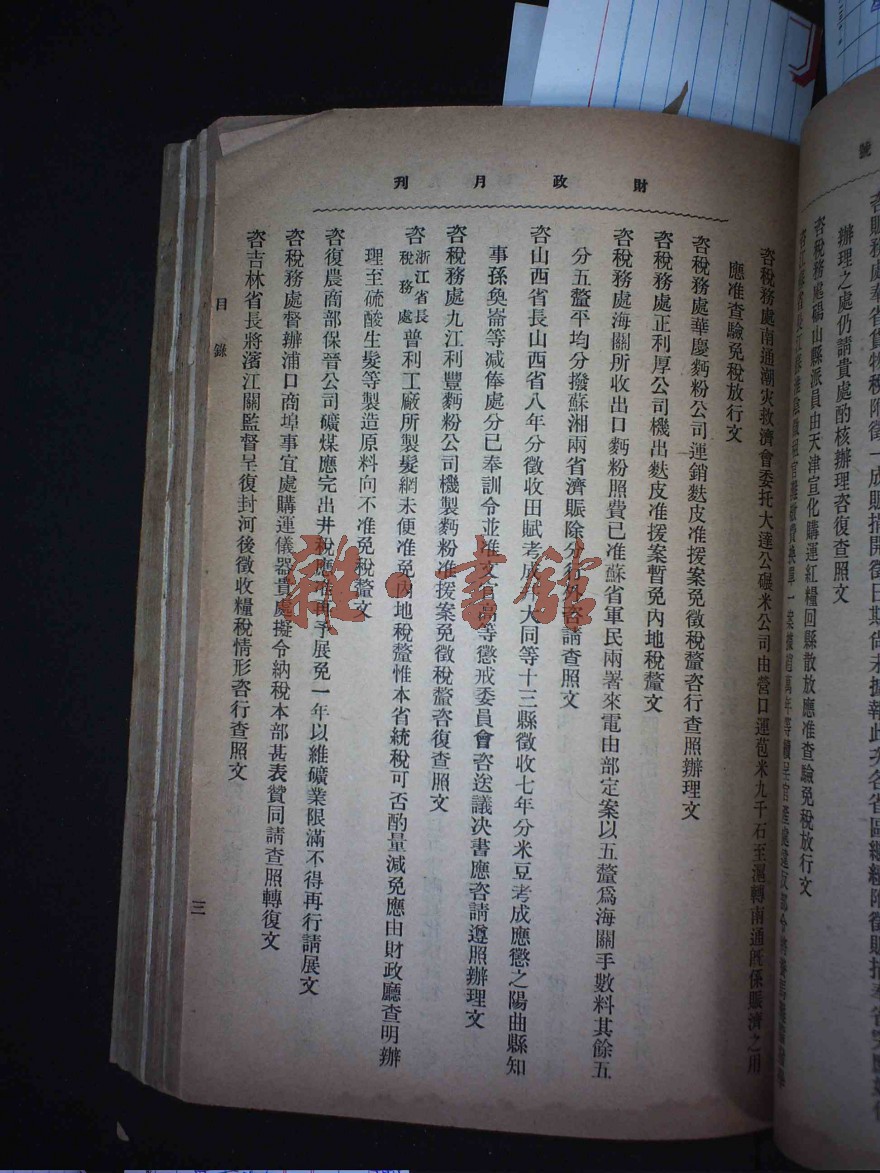 咨賑務處奉省貨物稅附徵一成賑捐開徵日期尚未據報此
辦理之處仍請貴處酌核辦理咨復查照文
咨稅務處碭山縣派員由天津宣化購運紅糧回縣散放應准查驗免稅放行文
財政月刊
咨稅務處南通潮災救濟會委托大達公碾米公司由營口運苞米九千石至滬轉南通旣係賑濟之用
應准查驗免稅放行文
咨稅務處華慶麪粉公司運銷麩皮准援案免徵稅釐咨行查照辦理文
咨稅務處正利厚公司機出麩皮准援案暫免內地稅釐文
咨稅務處海關所收出口麪粉照費已准蘇省軍民兩署來電由部定案以五釐爲海關手數料其餘五
分五釐平均分撥蘇湘兩省濟賑除分行外咨請查照文
咨山西省長山西省八年分徵收田賦考成及大同等十三縣徵收七年分米豆考成應懲之陽曲縣知
事孫奐崙等减俸處分已奉訓令並准文官高等懲戒委員會咨送議决書應咨請遵照辦理文
咨稅務處九江利豐麪粉公司機製麪粉准援案免徵稅釐咨復查照文
咨浙江省長稅務處普利工廠所製髮網未便准免內地稅釐惟本省統稅可否酌量減免應由財政廳查明辦
理至硫酸生髮等製造原料向不准免稅釐文
咨復農商部保晉公司礦煤應完出井稅應准再予展免一年以維礦業限滿不得再行請展文
咨稅務處督辦浦口商埠事宜處購運儀器貴處擬令納稅本部甚表贊同請查照轉復文
咨吉林省長將濱江關監督呈復封河後徵收糧稅情形咨行查照文
目錄
三
雜·書館